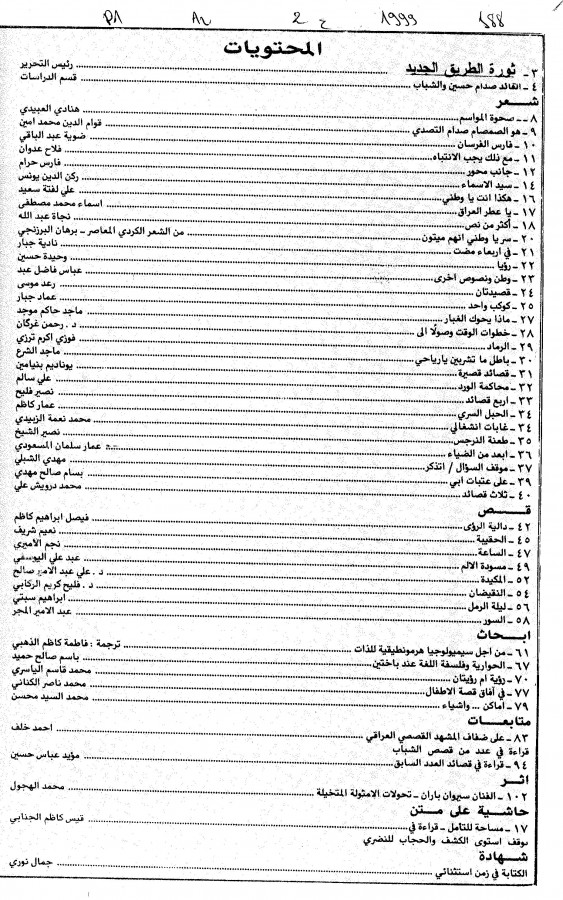 PA A2 2 ج 1999 588
المحتويات
٣ - ثورة الطريق الجديد ... رئيس التحرير
٤ - القائد صدام حسين والشباب ... قسم الدراسات
شعر
٨ - صحوة المواسم ... هنادي العبيدي
٩ - هو الصمصام صدام التصدي ... قوام الدين محمد امين
١٠ - فارس الفرسان ... ضوية عبد الباقي
١١ - مع ذلك يجب الانتباه ... فلاح عدوان
١٢ - جانب محور ... فارس حرام
١٤ - سيد الاسماء ... ركن الدين يونس
١٦ - هكذا انت يا وطني ... علي لفتة سعيد
١٧ - يا عطر العراق ... اسماء محمد مصطفى
١٨ - أكثر من نص ... نجاة عبد الله
٢٠ - سر يا وطني انهم ميتون ... من الشعر الكردي المعاصر - برهان البرزنجي
٢١ - في اربعاء مضت ... نادية جبار
٢٢ - رؤيا ... وحيدة حسين
٢٣ - وطن ونصوص اخرى ... عباس فاضل عبد
٢٤ - قصيدتان ... رعد موسى
٢٥ - كوكب واحد ... عماد جبار
٢٧ - ماذا يحوك الغبار ... ماجد حاكم موجد
٢٨ - خطوات الوقت وصولًا الى ... د . رحمن غركان
٢٩ - الرماد ... فوزي اكرم ترزي
٣٠ - باطل ما تشربين يارياحي ... ماجد الشرع
٣١ - قصائد قصيرة ... يوناديم بنيامين
٣٢ - محاكمة الورد ... علي سالم
٣٣ - اربع قصائد ... نصير فليح
٣٤ - الحبل السري ... عمار كاظم
٣٤ - غابات انشغالي ... محمد نعمة الزبيدي
٣٥ - طعنة النرجس ... نصير الشيخ
٣٦ - ابعد من الضياء ... عمار سلمان المسعودي
٣٧ - موقف السؤال / اتذكر ... مهدي الشبلي
٣٩ - على عتبات ابي ... بسام صالح مهدي
٤٠ - ثلاث قصائد ... محمد درويش علي
قـــص
٤٢ - دالية الرؤى ... فيصل ابراهيم كاظم
٤٥ - الحقيبة ... نعيم شريف
٤٧ - الساعة ... نجم الأميري
٤٩ - مسودة الالم ... عبد علي اليوسفي
٥٢ - المكيدة ... د . علي عبد الامير صالح
٥٤ - النقيضان ... د . فليح كريم الركابي
٥٦ - ليلة الرمل ... ابراهيم سبتي
٥٨ - السور ... عبد الامير المجر
ابـحاث
٦١ - من اجل سيميولوجيا هرمونطيقية للذات ... ترجمة : فاطمة كاظم الذهبي
٦٧ - الحوارية وفلسفة اللغة عند باختين ... باسم صالح حميد
٧٠ - رؤية ام رؤيتان ... محمد قاسم الياسري
٧٧ - في آفاق قصة الاطفال ... محمد ناصر الكناني
٧٩ - أماكن ... واشياء ... محمد السيد محسن
متابعـــات
٨٣ - على ضفاف المشهد القصصي العراقي ... احمد خلف
قراءة في عدد من قصص الشباب
٩٤ - قراءة في قصائد العدد السابق ... مؤيد عباس حسين
اثـر
١٠٢ - الفنان سيروان باران - تحولات الامثولة المتخيلة ... محمد الهجول
حاشية على مـتن
١٧ - مساحة للتأمل - قراءة في ... قيس كاظم الجنابي
موقف استوى الكشف والحجاب للنضري
شهـادة
الكتابة في زمن استثنائي ... جمال نوري